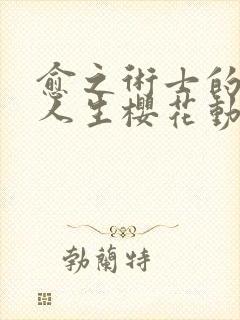 愈之術士的
人生櫻花動
勃蘭特